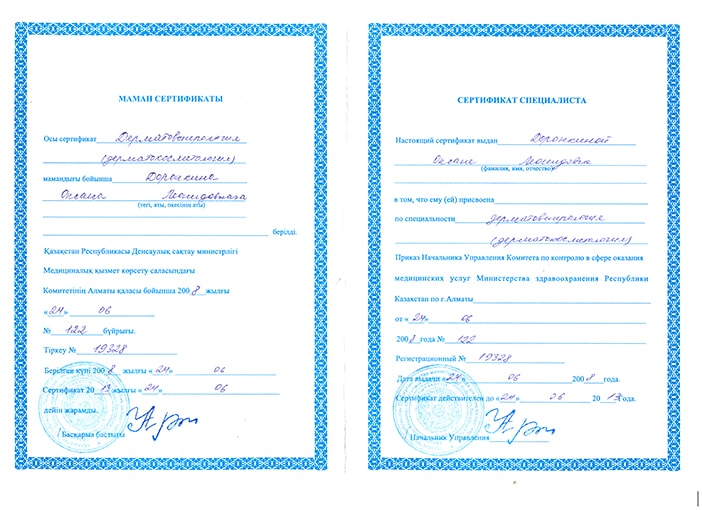 МАМАН СЕРТИФИКАТЫ
Осы сертификат Дерматовенерология
(дерматокосметология)
мамандығы бойынша Доронкина
Оксана Леонидовнаға
(тегі, аты, әкесінің аты)
берілді.
Қазақстан Республикасы Денсаулық сақтау министрлігі
Медициналық қызмет көрсету саласындағы
Комитетінің Алматы қаласы бойынша 2008 жылғы
«24» 06
№ 122 бұйрығы.
Тіркеу № 19328
Берілген күні 2008 жылғы «24» 06
Сертификат 2013 жылғы «24» 06
дейін жарамды.
Басқарма бастығы
СЕРТИФИКАТ СПЕЦИАЛИСТА
Настоящий сертификат выдан Доронкиной
Оксане Леонидовне
(фамилия, имя, отчество)
в том, что ему (ей) присвоена
по специальности дерматовенерология
(дерматокосметология)
Приказ Начальника Управления Комитета по контролю в сфере оказания
медицинских услуг Министерства здравоохранения Республики
Казахстан по г.Алматы
от «24» 06
2008 года № 122
Регистрационный № 19328
Дата выдачи «24» 06 2008 года.
Сертификат действителен до «24» 06 2013 года.
Начальник Управления